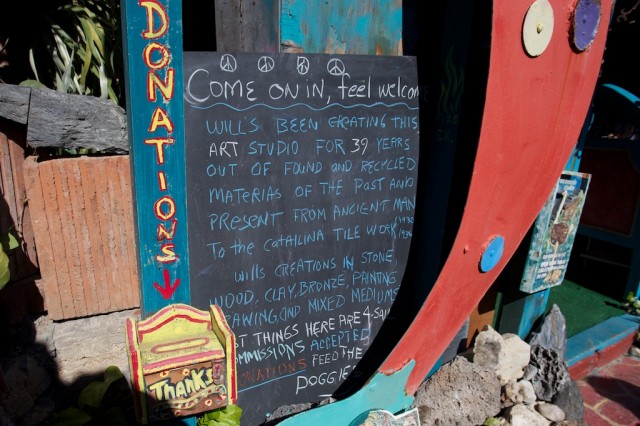 DONATIONS
COME ON IN, feel welcom
WILL'S BEEN CREATING THIS
ART STUDIO FOR 39 YEARS
OUT OF FOUND AND RECYCLED
MATERIAS OF THE PAST AND
PRESENT FROM ANCIENT MAN
TO THE CATALINA TILE WORK
WILLS CREATIONS IN STONE,
WOOD, CLAY, BRONZE, PAINTING
DRAWING, AND MIXED MEDIUMS
ST THINGS HERE ARE 4. SAL
MMISSIONS ACCEPTED
ONATIONS FEED THE
DOGGIE
THANKS